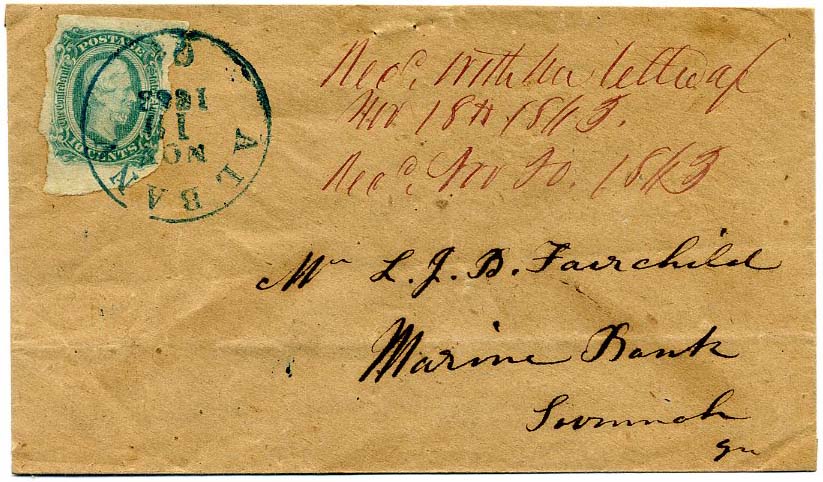 POSTAGE
The Confederate
10 CENTS
ALBANY
Ga
NOV
1863
Recd, With her letter of
Nov 18th 1863.
Recd, Nov 20. 1863
Mr L. J. B. Fairchild
Marine Bank
Savannah
Ga